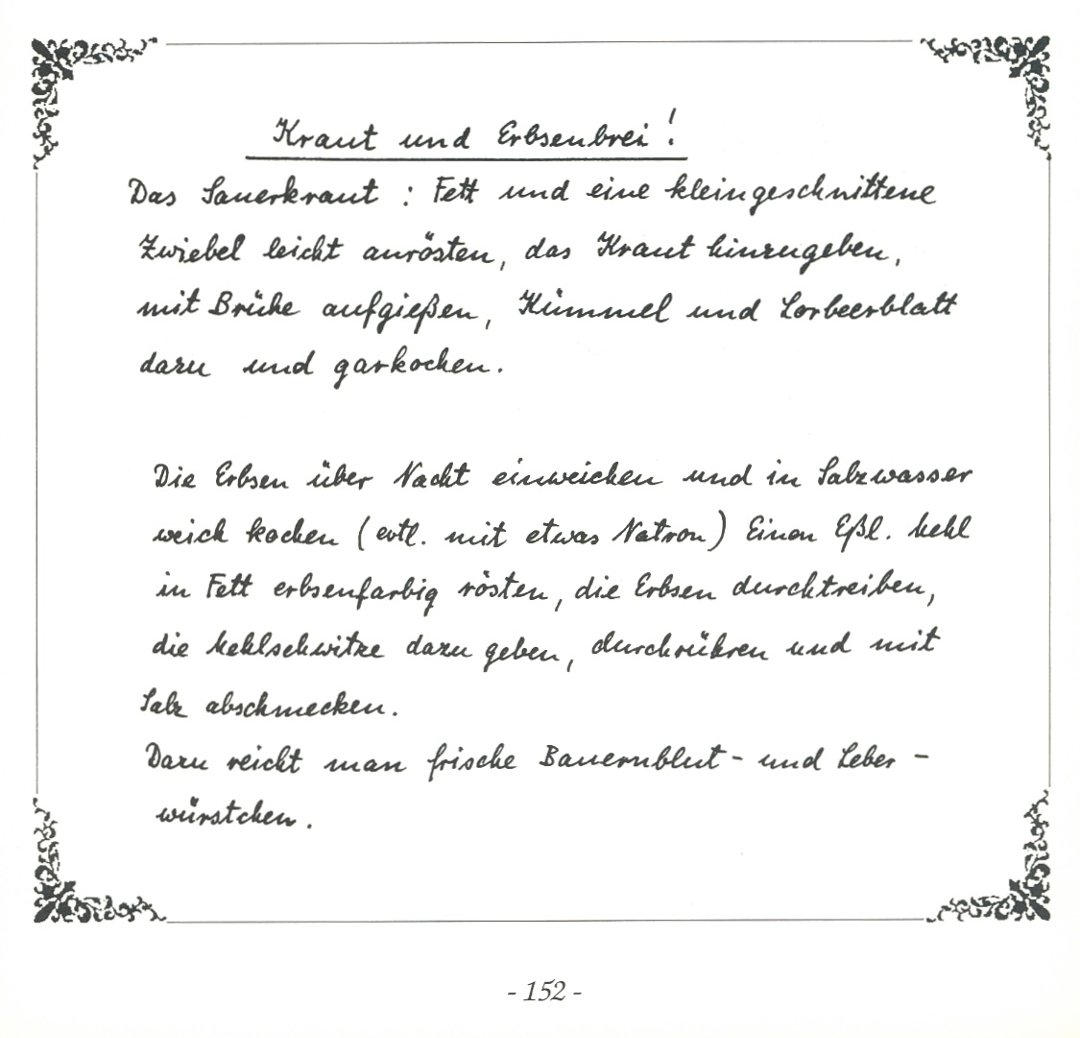 Kraut und Erbsenbrei!
Das Sauerkraut : Fett und eine kleingeschnittene
Zwiebel leicht anrösten, das Kraut hinzugeben,
mit Brühe aufgießen, Kümmel und Lorbeerblatt
dazu und garkochen.
Die Erbsen über Nacht einweichen und in Salzwasser
weich kochen (evtl. mit etwas Natron) Einen Eßl. Mehl
in Fett erbsenfarbig rösten, die Erbsen durchtreiben,
die Mehlschwitze dazu geben, durchrühren und mit
Salz abschmecken.
Dazu reicht man frische Bauernblut- und Leber-
würstchen.
- 152 -